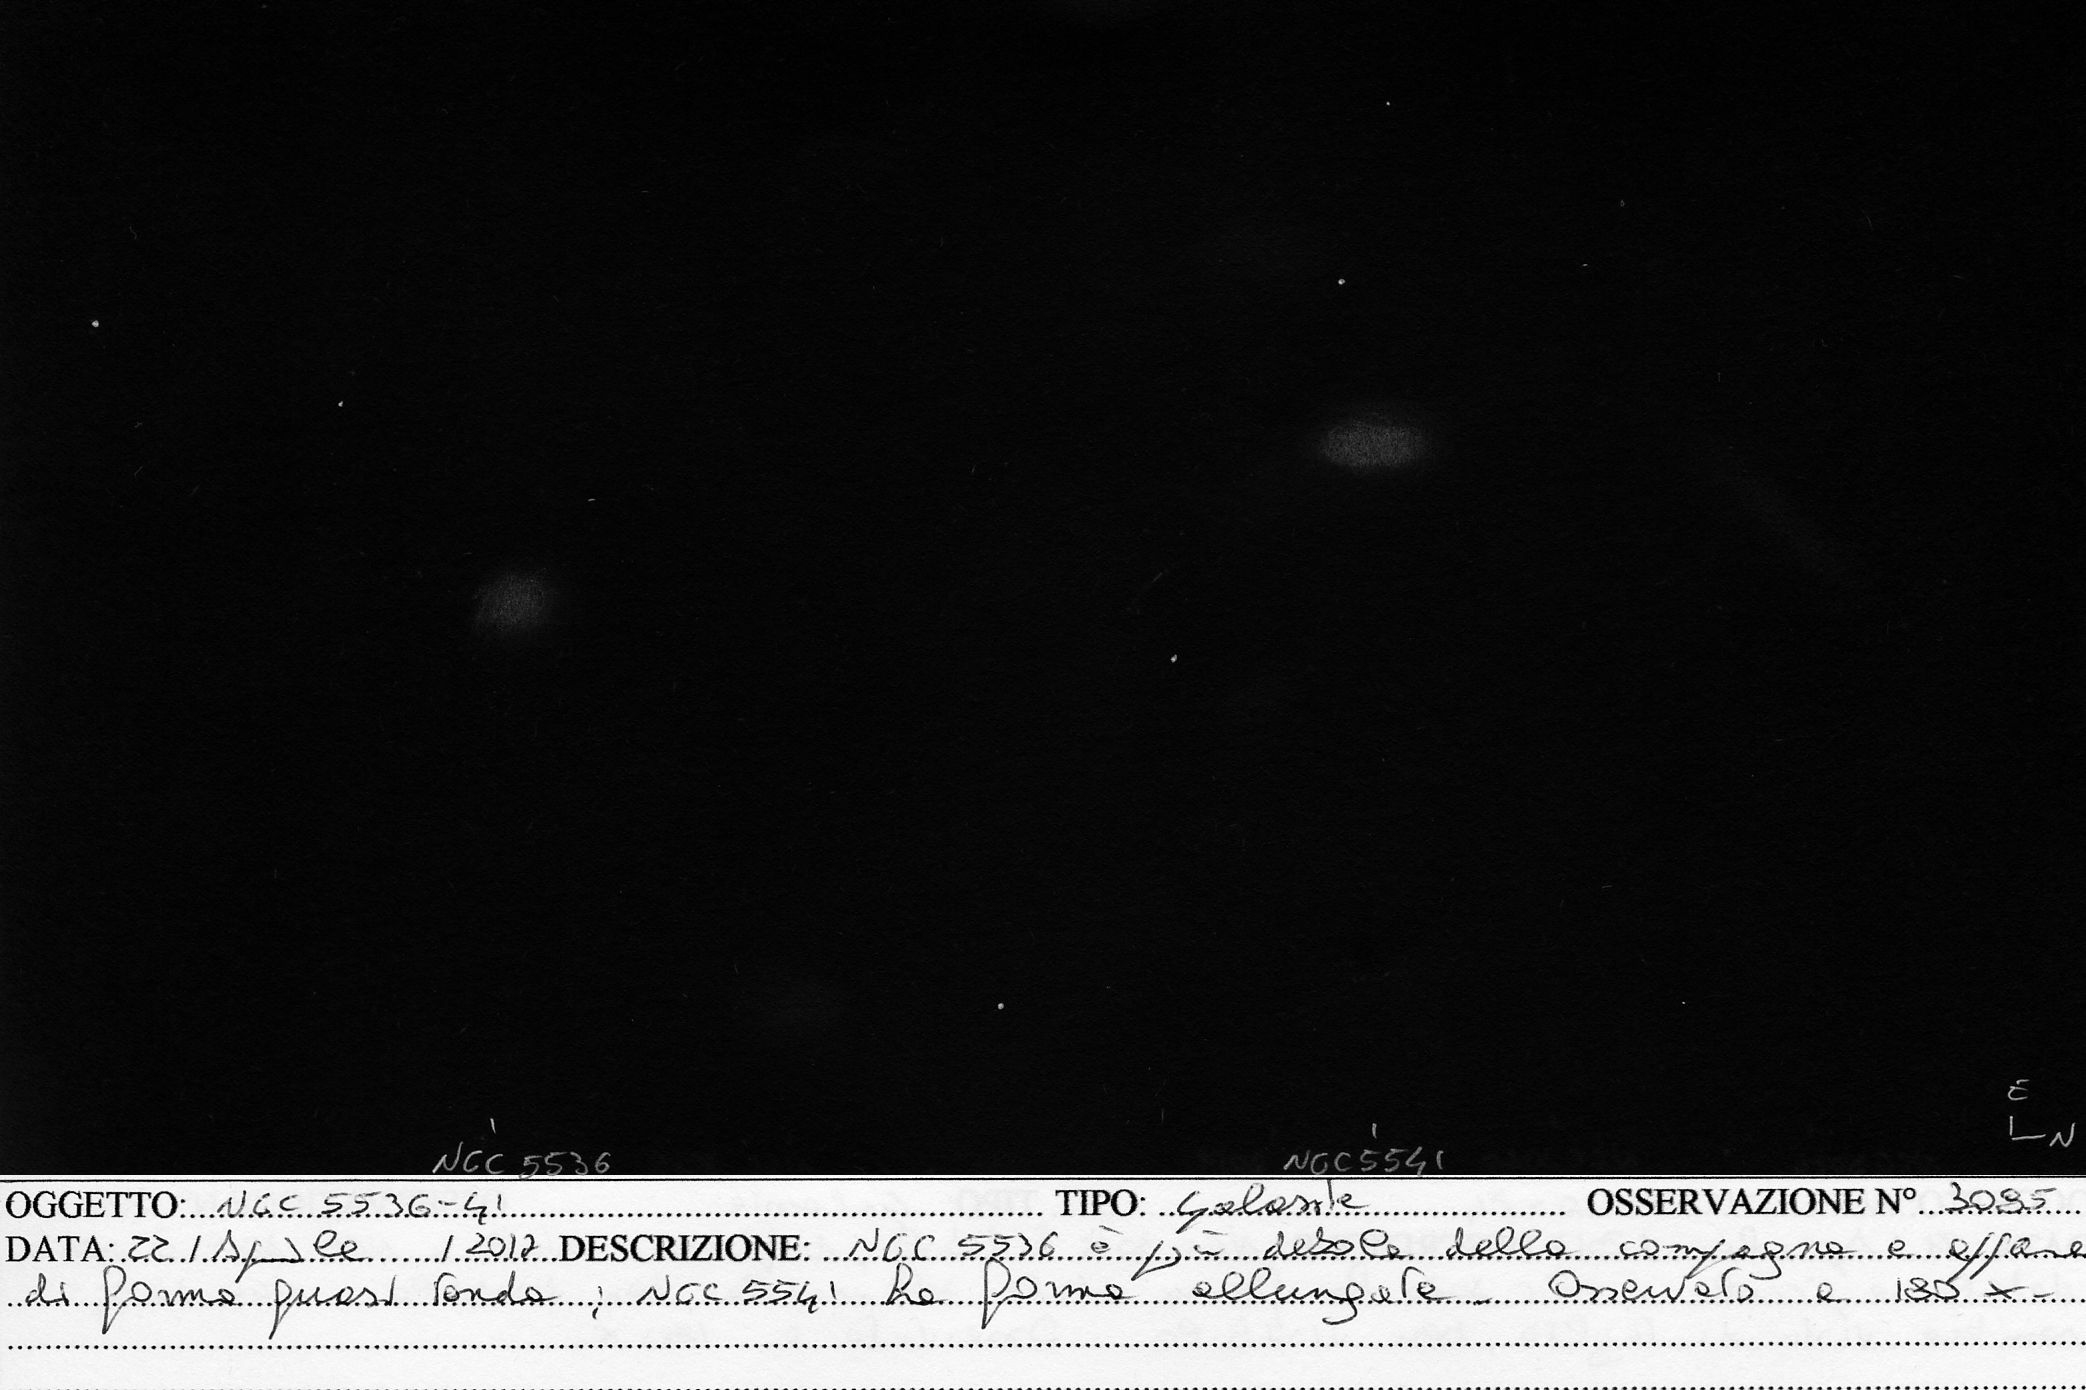 E
N
NGC 5536 NGC 5541
OGGETTO: NGC 5536-41 TIPO: Galassie OSSERVAZIONE N° 3095
DATA: 22 / Aprile / 2017 DESCRIZIONE: NGC 5536 è più debole della compagna e appare
di forma quasi tonda; NGC 5541 ha forma allungata - Osservato a 180 x-